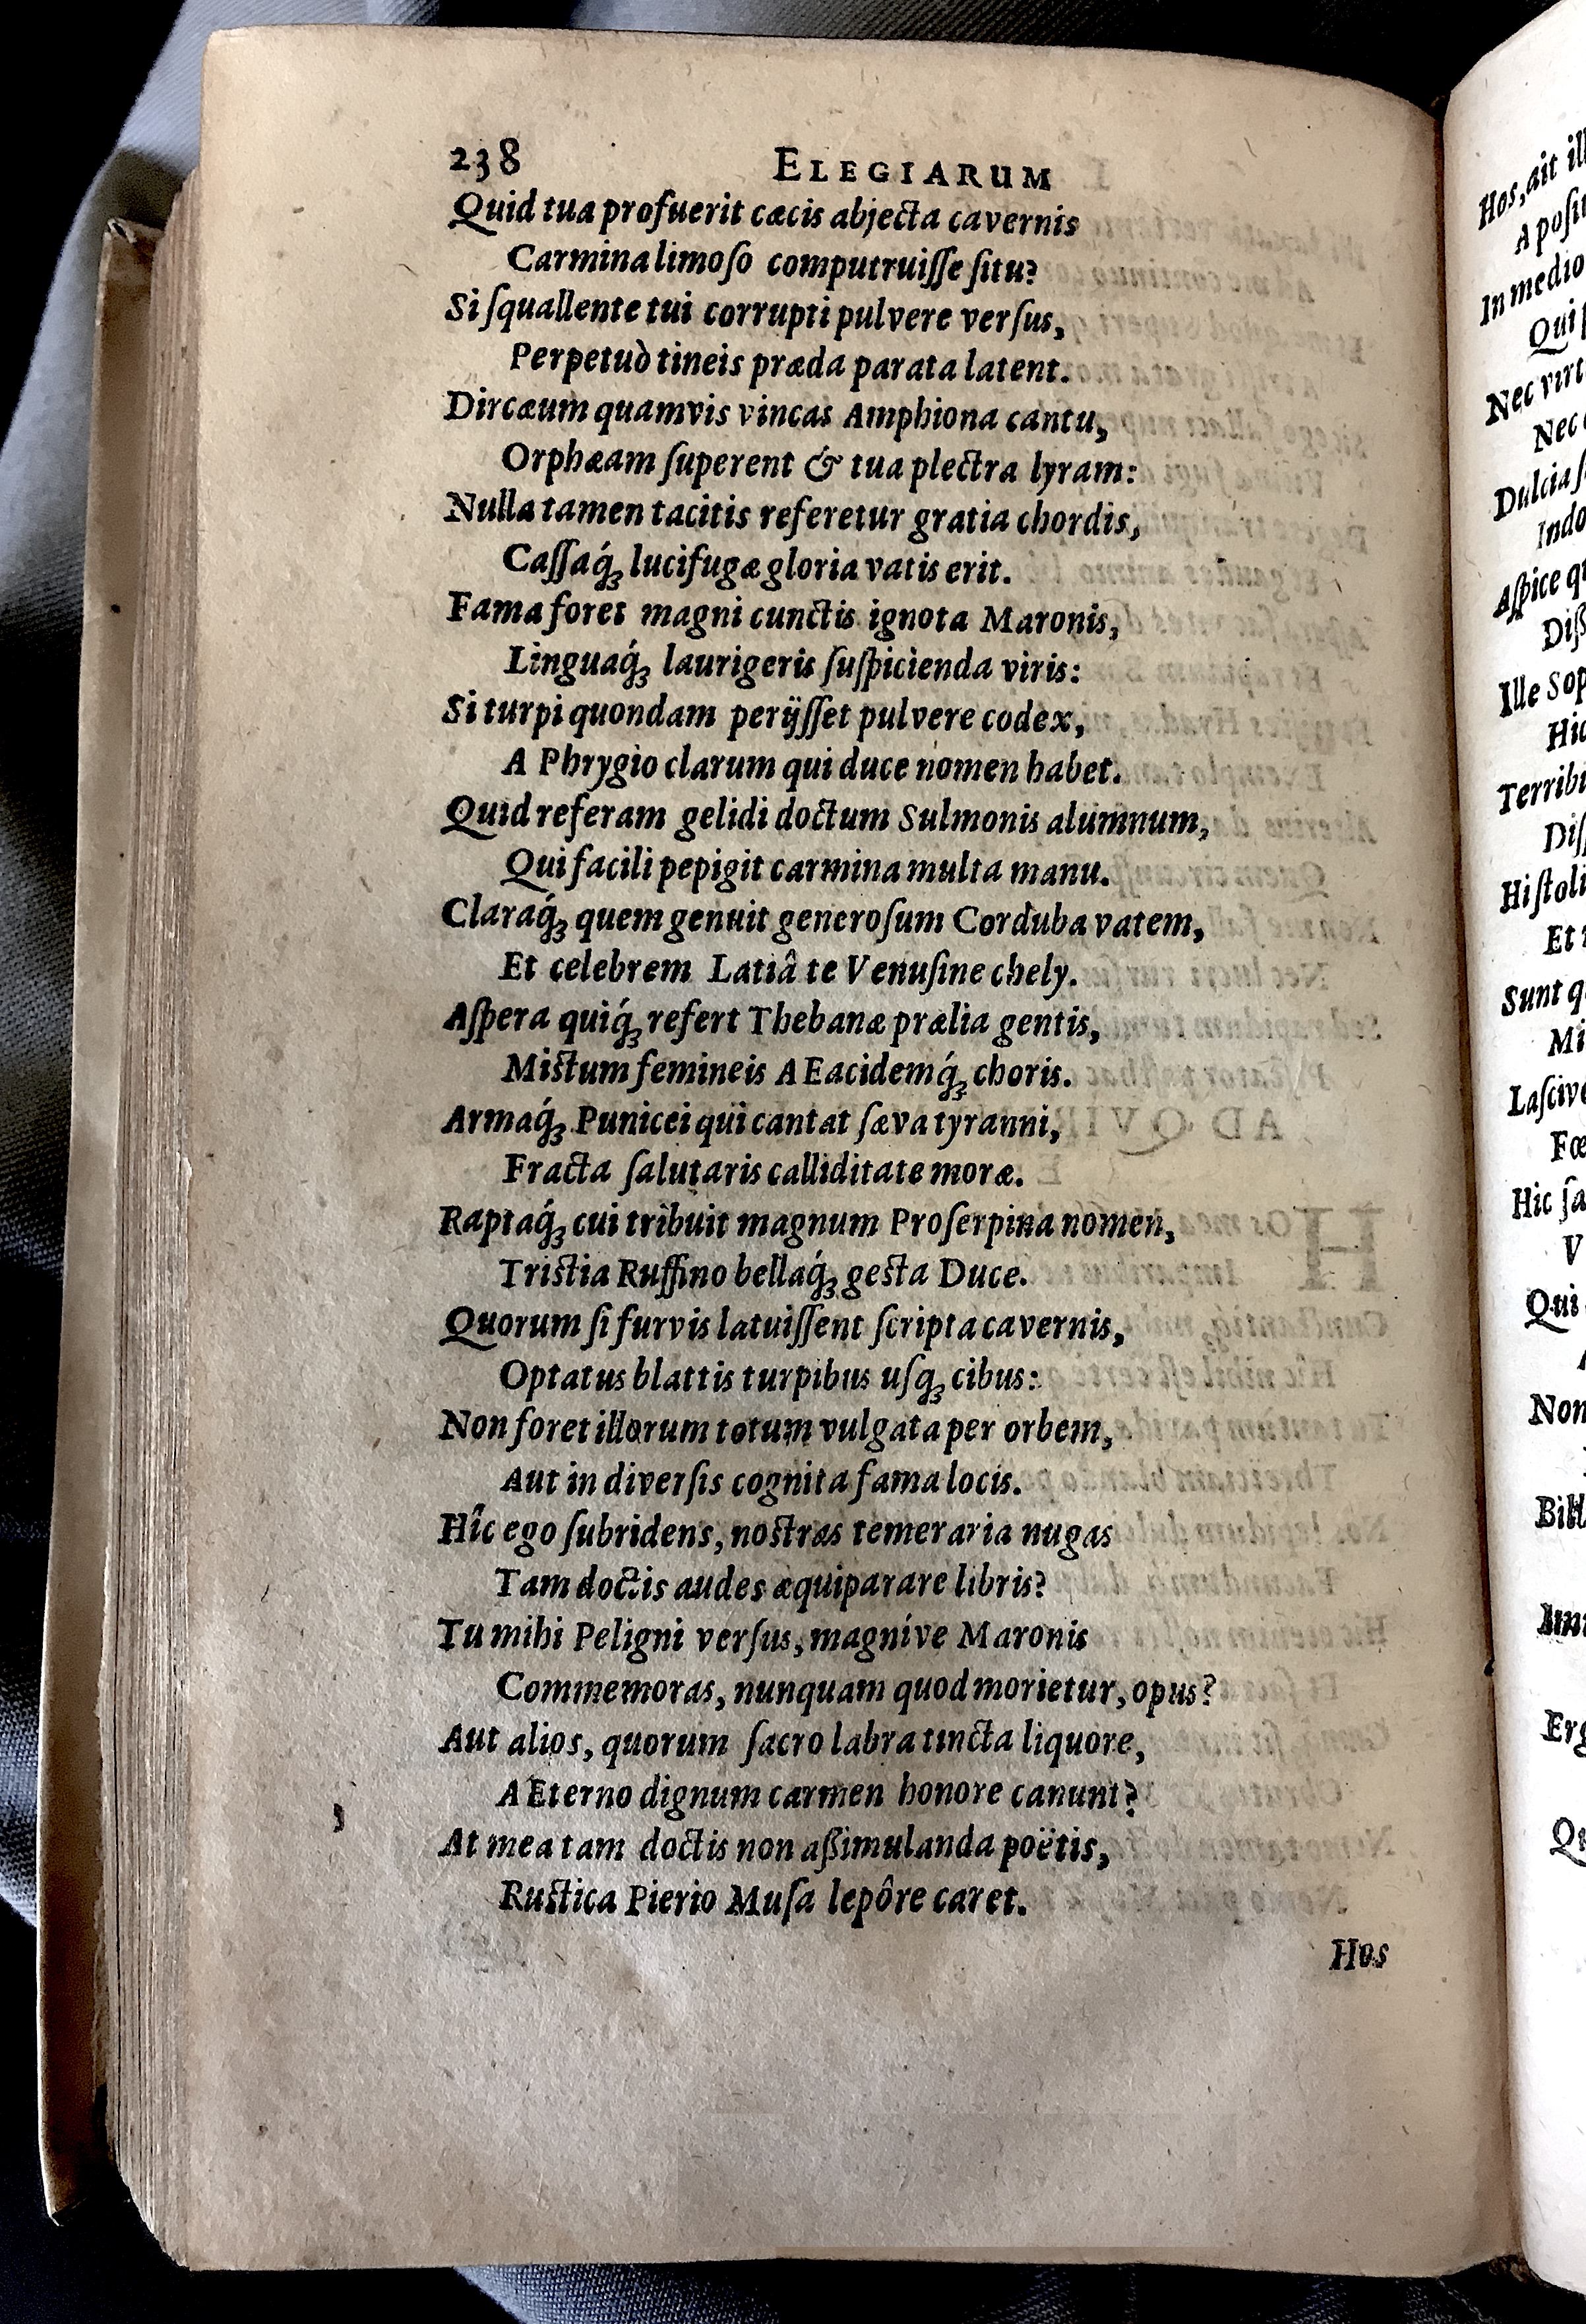 238 ELEGIARUM
Quid tua profuerit cæcis abjecta cavernis
Carmina limoso computruiſſe ſitu?
Si ſquallente tui corrupti pulvere verſus,
Perpetuò tineis præda parata latent.
Dircæum quamvis vincas Amphiona cantu,
Orphæam ſuperent & tua plectra lyram:
Nulla tamen tacitis referetur gratia chordis,
Caſſaq́ꝫ lucifugæ gloria vatis erit.
Fama foret magni cunctis ignota Maronis,
Linguaq́ꝫ laurigeris ſuſpicienda viris:
Si turpi quondam perijſſet pulvere codex,
A Phrygio clarum qui duce nomen habet.
Quid referam gelidi doctum Sulmonis alumnum,
Qui facili pepigit carmina multa manu.
Claraq́ꝫ quem genuit generoſum Corduba vatem,
Et celebrem Latiâ te Venuſine chely.
Aſpera quiq́ꝫ refert Thebanæ prælia gentis,
Miſtum femineis AEacidemq́ꝫ choris.
Armaq́ꝫ Punicei qui cantat ſæva tyranni,
Fracta ſalutaris calliditate moræ.
Raptaq́ꝫ cui tribuit magnum Proſerpina nomen,
Triſtia Ruffino bellaq́ꝫ geſta Duce.
Quorum ſi furvis latuiſſent ſcripta cavernis,
Optatus blattis turpibus uſqꝫ cibus:
Non foret illorum totum vulgata per orbem,
Aut in diverſis cognita fama locis.
Hîc ego ſubridens, noſtras temeraria nugas
Tam doctis audes æquiparare libris?
Tu mihi Peligni verſus, magníve Maronis
Commemoras, nunquam quod morietur, opus?
Aut alios, quorum ſacro labra tincta liquore,
AEterno dignum carmen honore canunt?
At mea tam doctis non aßimulanda poëtis,
Ruſtica Pierio Muſa lepôre caret.
Hos
Hos, ait
In medio
Nec
Nec
Aſpice
Ille
Et
Sunt
Hic
Qui